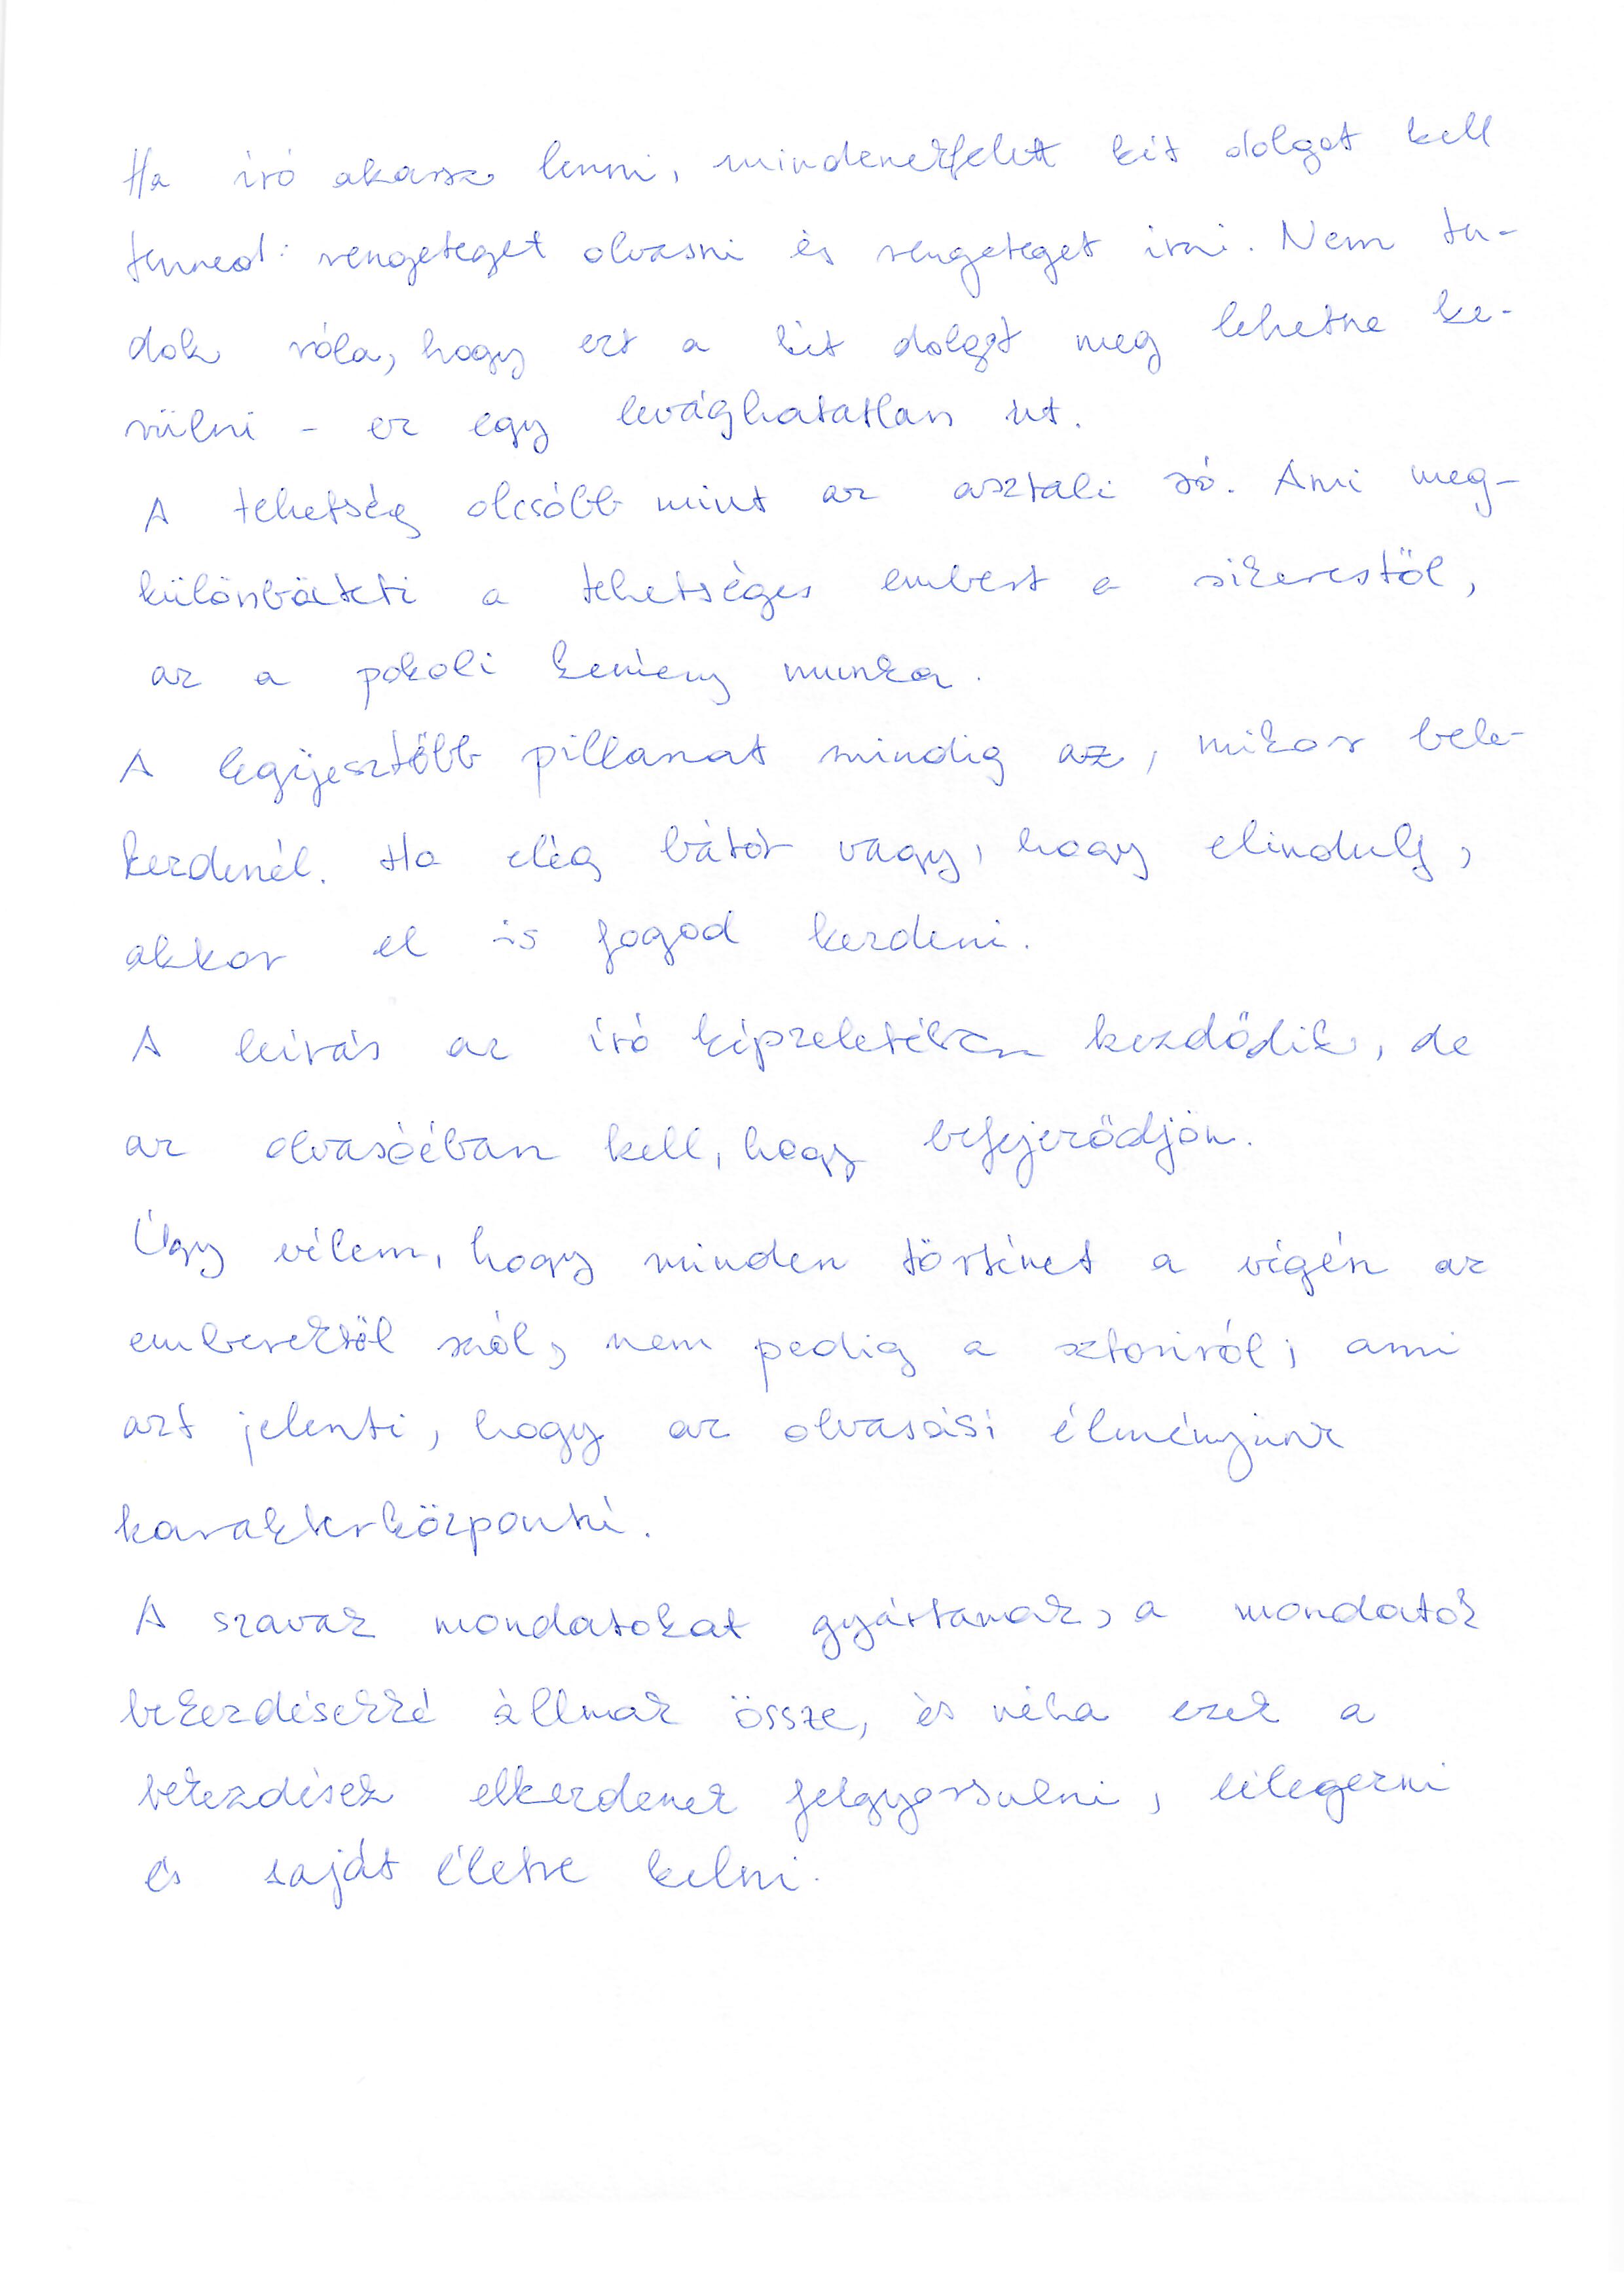 Ha író akarsz lenni, mindenekfelett két dolgot kell
tenned: rengeteget olvasni és rengeteget írni. Nem tu-
dok róla, hogy ezt a két dolgot meg lehetne ke-
rülni - ez egy levághatatlan út.
A tehetség olcsóbb mint az asztali só. Ami meg-
különbözteti a tehetséges embert a sikerestől,
az a pokoli kemény munka.
A legijesztőbb pillanat mindig az, mikor bele-
kezdenél. Ha elég bátor vagy, hogy elindulj,
akkor el is fogod kezdeni.
A leírás az író képzeletében kezdődik, de
az olvasóéban kell, hogy befejeződjön.
Úgy vélem, hogy minden történet a végén az
emberektől szól, nem pedig a sztoriról; ami
azt jelenti, hogy az olvasási élményünk
karakterközpontú.
A szavak mondatokat gyártanak, a mondatok
bekezdésekké állnak össze, és néha ezek a
bekezdések elkezdenek felgyorsulni, lélegezni
és saját életre kelni.